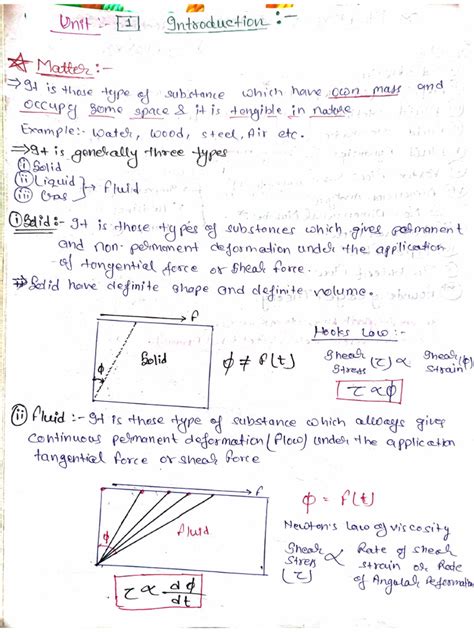 Unit :- 1 Introduction :-
Matter :-
⇒ It is those type of substance which have own mass and
occupy some space & it is tangible in nature
Example:- Water, wood, steel, Air etc.
⇒ It is generally three types
(i) Solid
(ii) Liquid
(iii) Gas } → Fluid
(i) Solid :- It is those types of substances which gives permanent
and non-permanent deformation under the application
of tangential force or shear force.
⇒ Solid have definite shape and definite volume.
F
Hooks Law :-
ϕ Solid ϕ ≠ f(t) Shear Stress (τ) ∝ Shear strain (ϕ)
τ ∝ ϕ
(ii) Fluid :- It is those type of substance which always gives
continuous permanent deformation (flow) under the application
tangential force or shear force
F
ϕ = f(t)
ϕ Fluid
Newton's Law of viscosity
Shear Stress (τ) ∝ Rate of shear strain or Rate of Angular Deformation
τ ∝ dϕ/dt